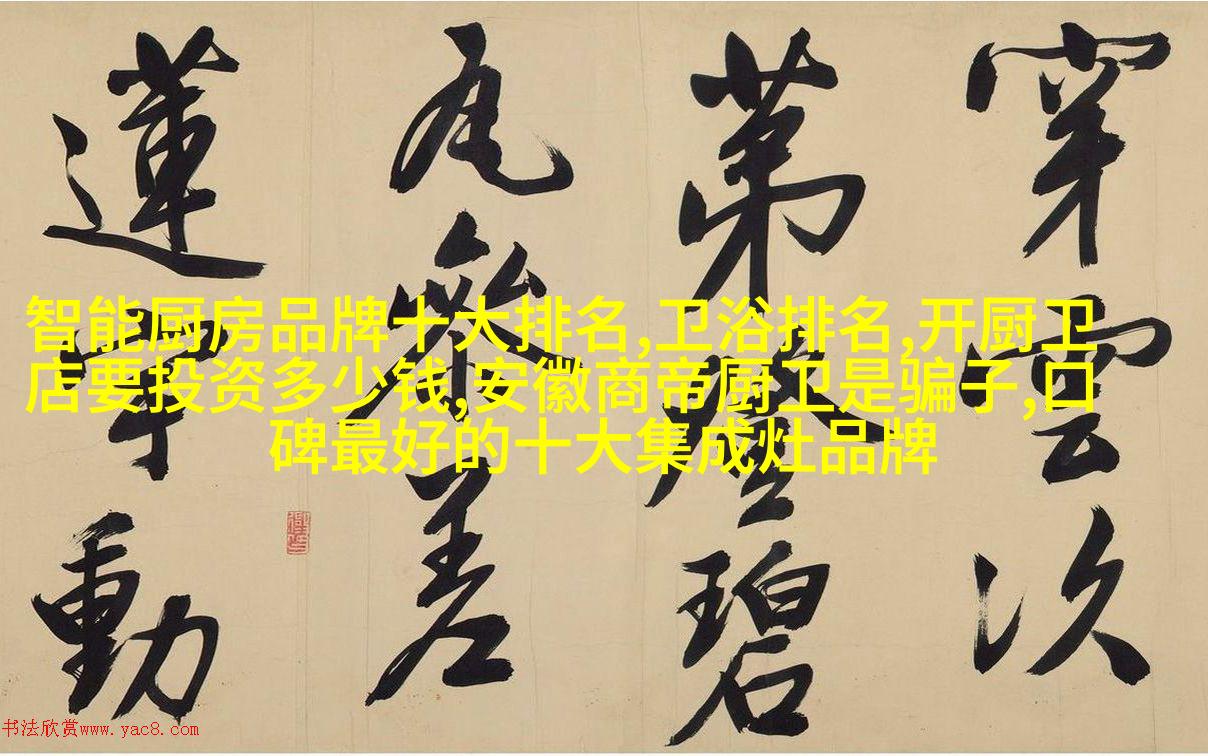 穿雲次
第登碧
瓦參差
蓮宇動
智能厨房品牌十大排名,卫浴排名,开厨卫
店要投资多少钱,安徽商帝厨卫是骗子,口
碑最好的十大集成灶品牌
书法欣赏www.yac8.com